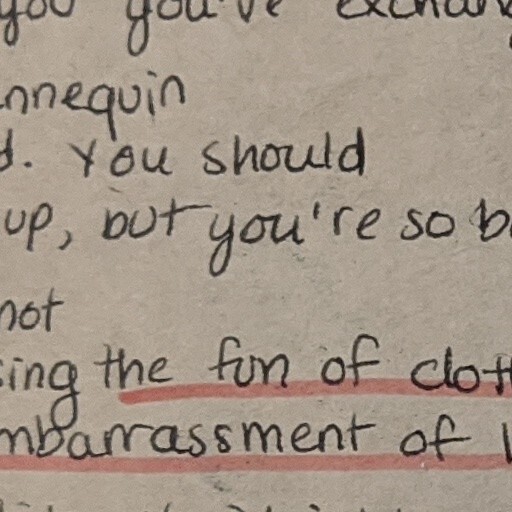 you you've exchan
nnequin
d. You should
up, but you're so b
not
sing the fun of clot
mbarrassment of